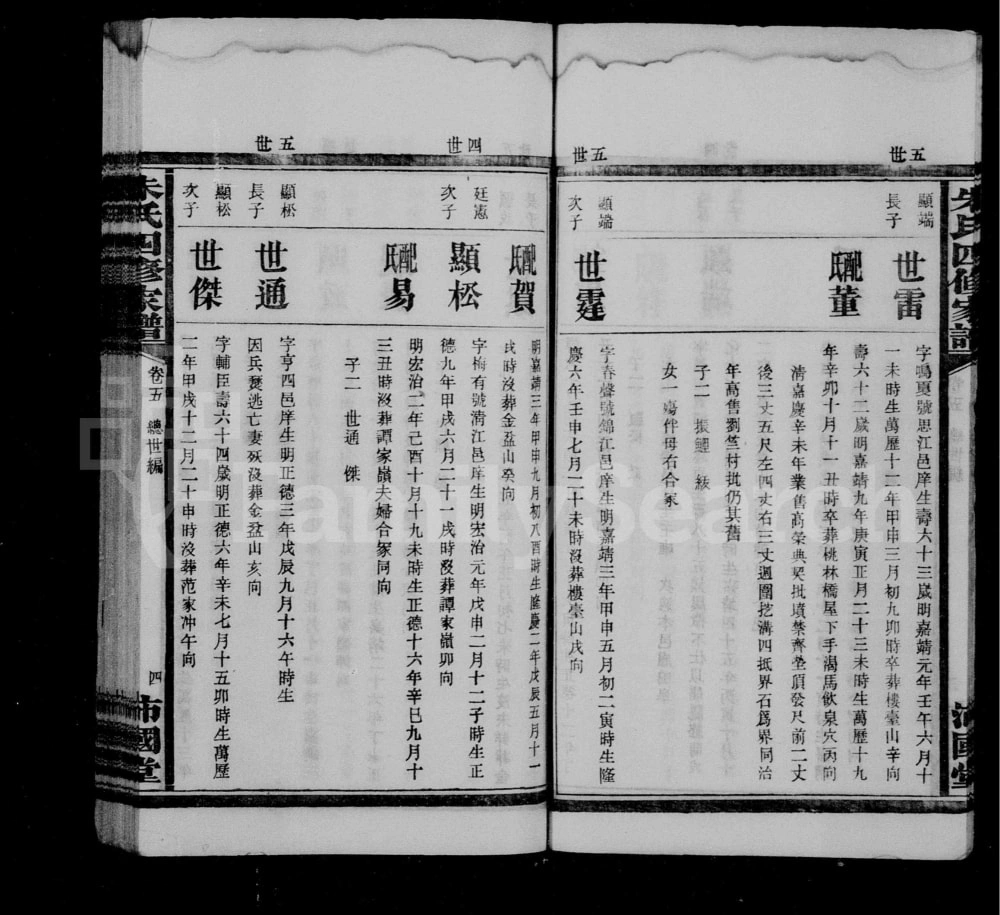 五世
顯端
長子
世雷
字鳴夏號思江邑庠生壽六十三歲明嘉靖元年壬午六月十
一未時生萬歷十二年甲申三月初九卯時卒葬樓臺山辛向
配董
壽六十二歲明嘉靖九年庚寅正月二十三未時生萬歷十九
年辛卯十月十一丑時卒葬桃林橋屋下手渴馬飲泉穴丙向
清嘉慶辛未年業舊高榮典契批墳禁齊塋頂發尺前二丈
後三丈五尺左四丈右三丈週圍挖溝四抵界石爲界同治
年高售劉竺村批仍其舊
子二 振鯉 級
女一 殤伴母右合冢
五世
顯端
次子
世霆
字春聲號錦江邑庠生明嘉靖三年甲申五月初二寅時生隆
慶六年壬申七月二十未時沒葬樓臺山戌向
配賀
明嘉靖三年甲申九月初八酉時生隆慶二年戊辰五月十一
戌時沒葬金盆山癸向
四世
廷憲
次子
顯松
字梅有號清江邑庠生明宏治元年戊申二月十二子時生正
德九年甲戌六月二十一戌時沒葬譚家嶺卯向
配易
明宏治二年己酉十月十九未時生正德十六年辛巳九月十
三丑時沒葬譚家嶺夫婦合冢同向
子二 世通 傑
五世
顯松
長子
世通
字亨四邑庠生明正德三年戊辰九月十六午時生
因兵燹逃亡妻歿沒葬金盆山亥向
顯松
次子
世傑
字輔臣壽六十四歲明正德六年辛未七月十五卯時生萬歷
二年甲戌十二月二十申時沒葬范家冲午向
朱氏四修家譜
卷五 總世編
四
沛國堂